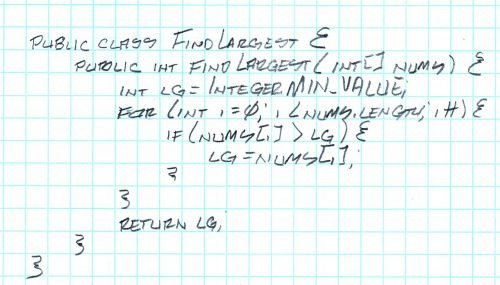 PUBLIC CLASS FINDLARGEST {
PUBLIC INT FINDLARGEST(INT[] NUMS) {
INT LG = INTEGER.MIN_VALUE;
FOR (INT i=0; i<NUMS.LENGTH; i++) {
IF (NUMS[i] > LG) {
LG = NUMS[i];
}
}
RETURN LG;
}
}